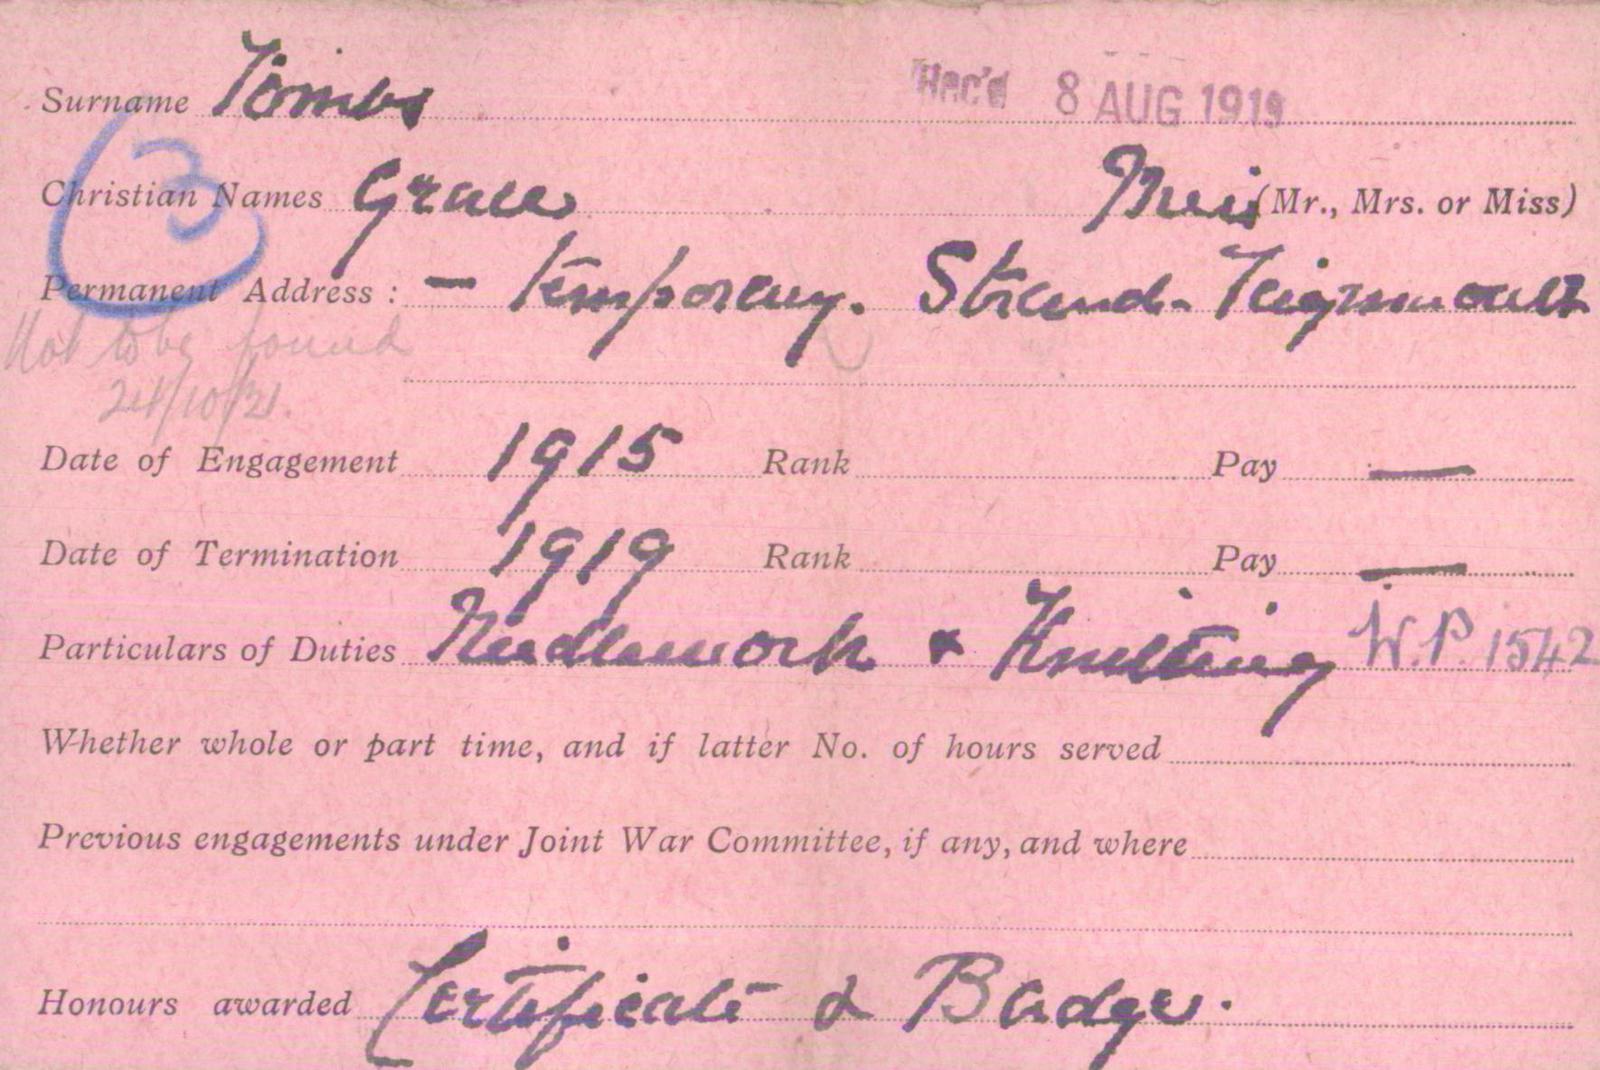 Surname Tombs Rec'd 8 AUG 1919
Christian Names Grace Miss (Mr., Mrs. or Miss)
3
Permanent Address : — Temporary. Strand - Teignmouth
Not to be found
24/10/21.
Date of Engagement 1915 Rank Pay —
Date of Termination 1919 Rank Pay —
Particulars of Duties Needlework & Knitting W.P. 1542
Whether whole or part time, and if latter No. of hours served
Previous engagements under Joint War Committee, if any, and where
Honours awarded Certificate & Badge.